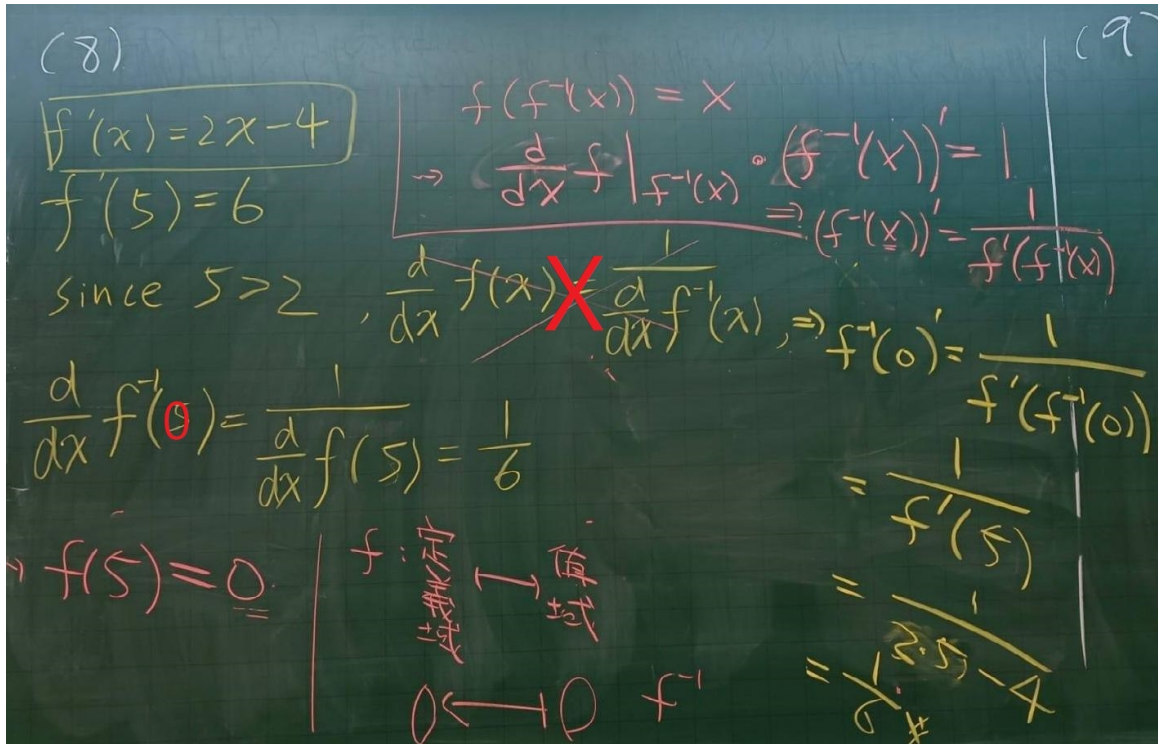 (8)
f'(x)=2x-4
f'(5)=6
since 5>2 , d/dx f(x) = 1/(d/dx f⁻¹(x)) , ⇒
X
d/dx f⁻¹(0) = 1/(d/dx f(5)) = 1/6
→ f(5)=0
f(f⁻¹(x)) = x
→ d/dx f |f⁻¹(x) · (f⁻¹(x))' = 1
⇒ (f⁻¹(x))' = 1/f'(f⁻¹(x))
f⁻¹(0)' = 1/f'(f⁻¹(0))
= 1/f'(5)
= 1/(2·5-4)
= 1/6 #
f : 定義域 ↔ 值域
0 ← 0 f⁻¹
(9)